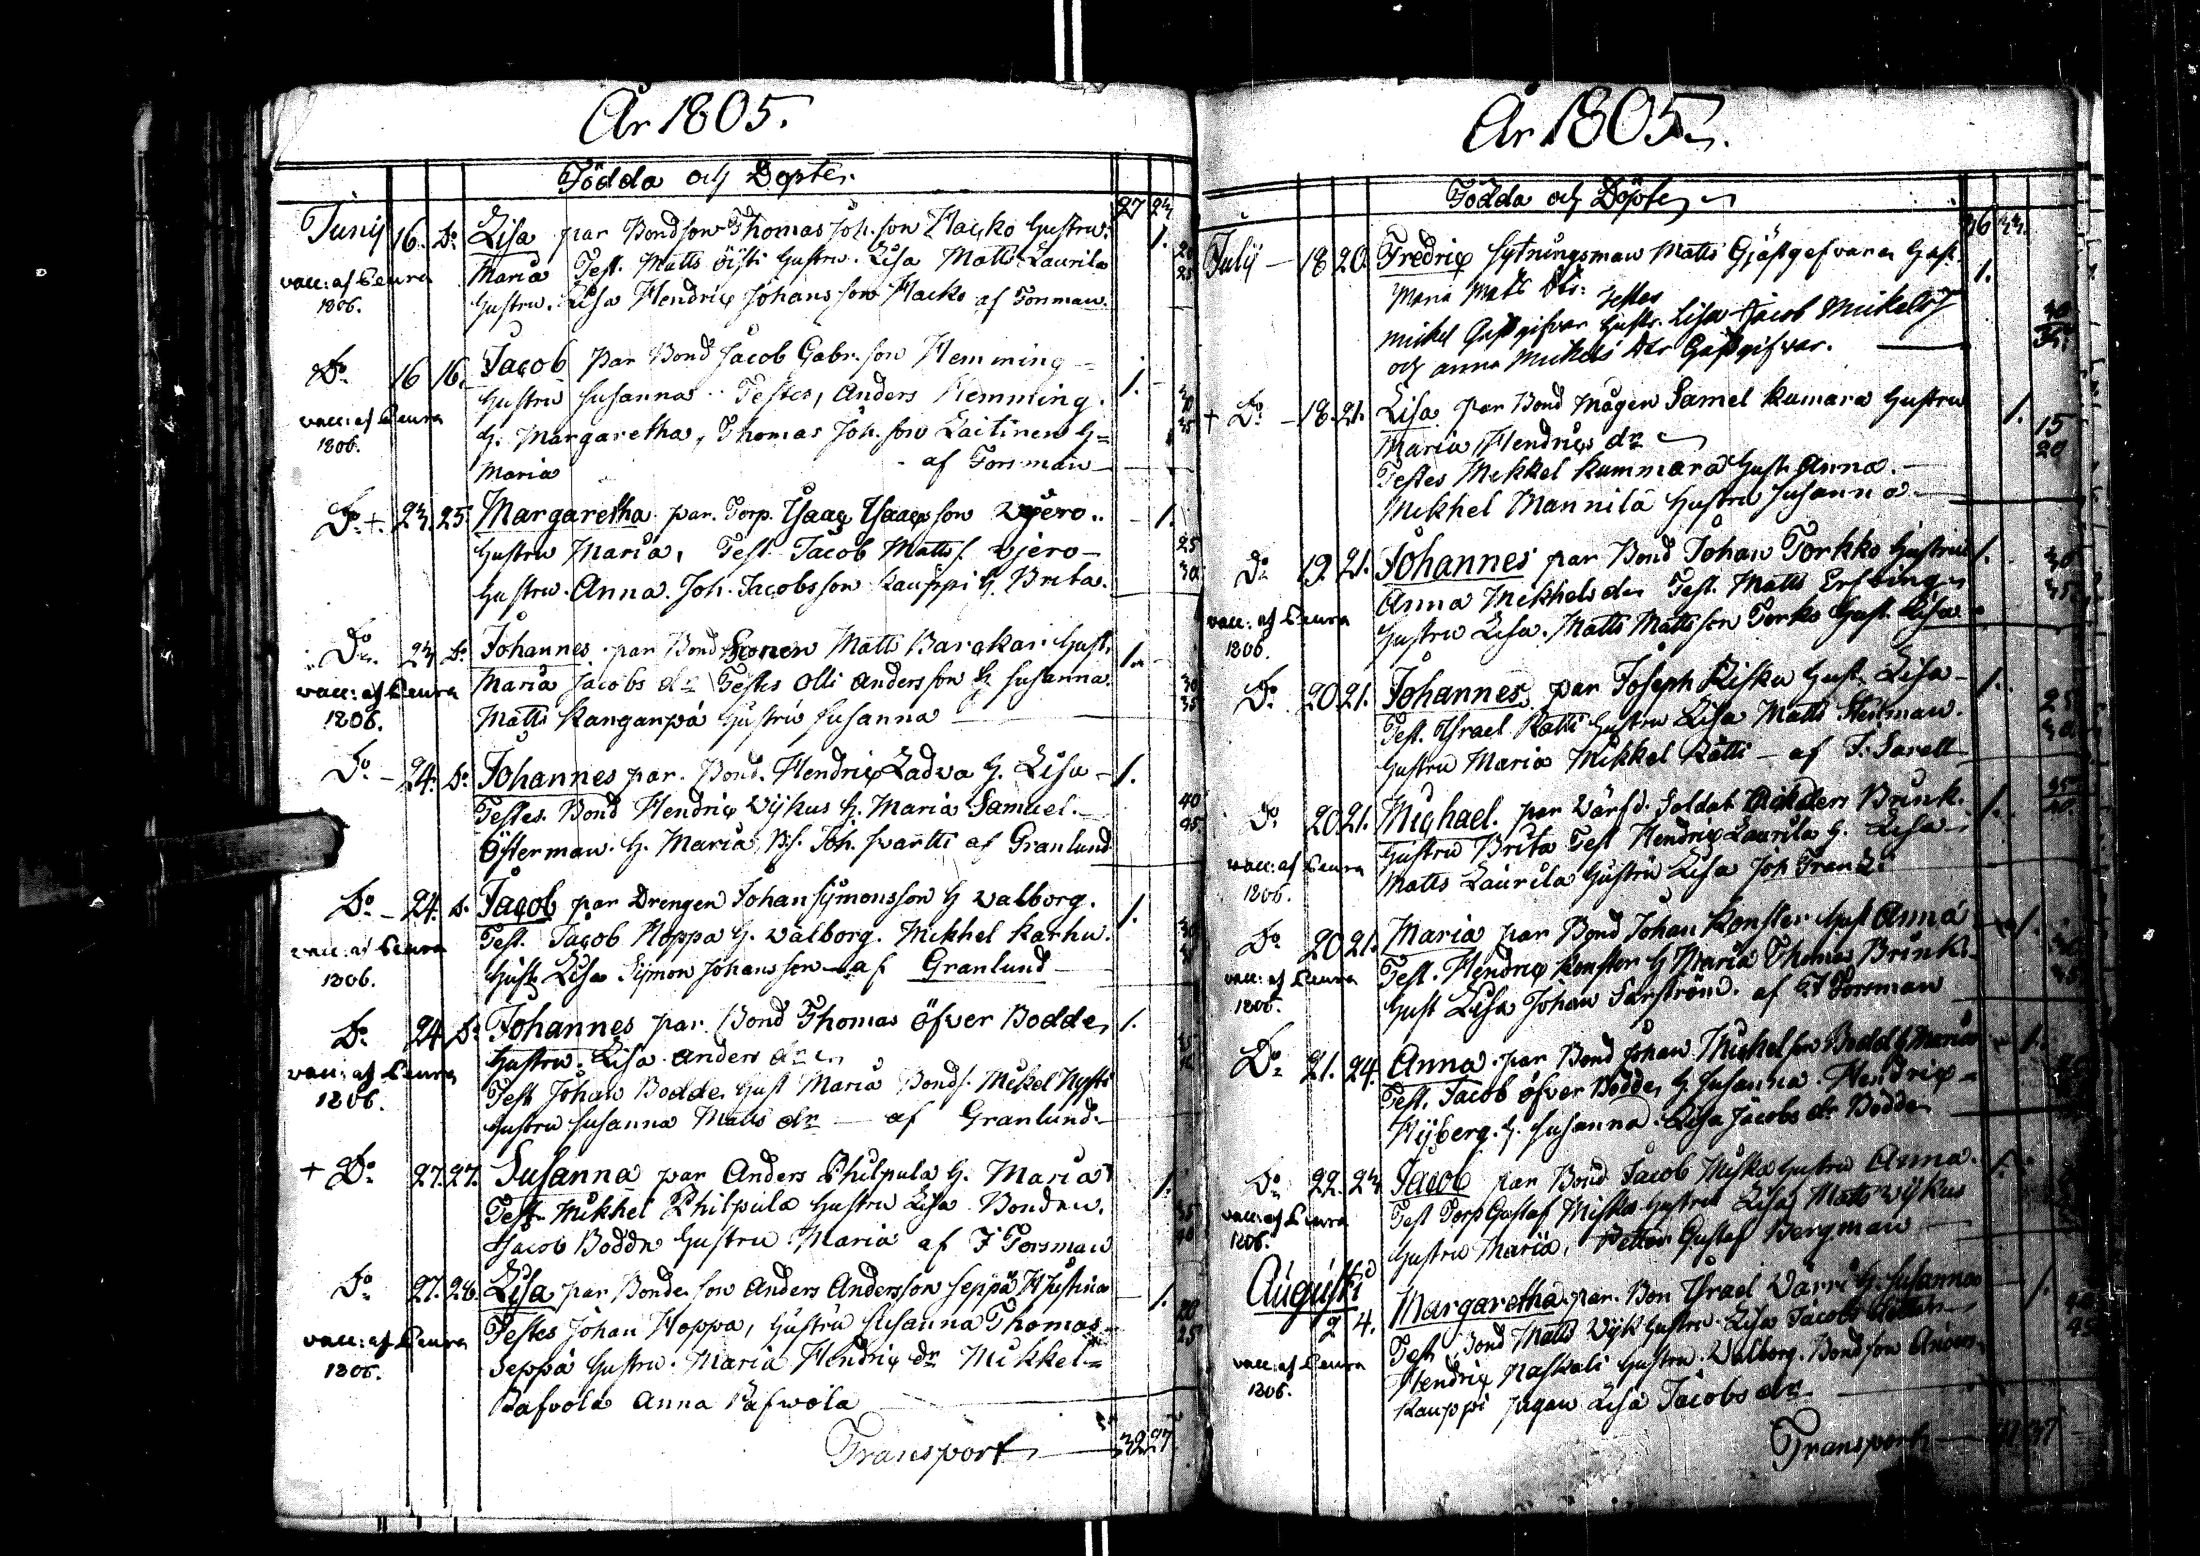 År 1805.
Födda och Döpte.
27 23
Junij 16. Do. Lisa par Bondson Thomas Joh. son Hacko hustru. 1.
Maria Test. Matts öisti hustru. Lisa Matts Laurila
vacc: af Ceura 1806.
hustru. Lisa Hendriq Johans son Hacko af Forsman.
Do. 16 16. Jacob par Bond Jacob Gabr. son Hemming 1.
hustru Susanna. Testes, Anders Hemming.
vacc: af Ceura 1806.
H. Margaretha, Thomas Joh. son Laitinen H=
Maria af Forsman
Do. + 23. 25. Margaretha par. Torp. Isaaq Isaaqson 1.
hustru Maria, Test. Jacob Matts f.
hustru. Anna. Joh. Jacobsson Kauppi H. Brita.
Do. 23 Do. Johannes par Bond Matts hust. 1.
Maria Jacobs dr Testes Olli Andersson H Susanna.
vacc: af Ceura 1806.
Matts Kanganpä hustru Susanna
Do. 24. Do. Johannes par. Bond. Hendriq Ladva H. Lisa 1.
Testes. Bond Hendriq Wijkus H. Maria Samuel.
Österman. H. Maria, Joh. af Granlund
Do. 24. Do. Jacob par Drengen Johan Symonsson H Valborg. 1.
Test. Jacob Hoppa H. Valborg. Mikhel Karhu.
vacc: af Ceura 1806.
hust. Lisa Symon Johansson af Granlund
Do. 24 Do. Johannes par Bond Thomas öfver Bodde, 1.
hustru. Lisa Anders dr
vacc: af Ceura 1806.
Test Johan Bodde, hust Maria Bonds. Mikel
hustru Susanna Matts dr af Granlund.
+ Do. 27. 27. Susanna par Anders Philpula H. Maria 1.
Test. Mikhel Philpula hustru Lisa Bonden.
Jacob Bodde hustru Maria af F Forsman
Do. 27. 28. Lisa par Bonde son Anders Andersson Seppä H Justina 1.
Testes Johan Hoppa, hustru Susanna Thomas
vacc: af Ceura 1806.
Seppä hustru. Maria Hendriq dr Mikkel
Rafvola Anna Rafwola
Transport 32 27
År 1805.
Födda och Döpte
July 18 20. Fredriq Sytningsman Matts Gjästgefvare hust. 1.
Maria Matts dtr. Testes
Mickel Gästgifvar hustr. Lisa Jacob Mickels
och Anna Mickels dtr Gästgifvar.
+ Do. 18. 21. Lisa par Bond mågen Samel Kumara hustru 1.
Maria Hendriqs dr
Testes Mekkel Kummara hust. Anna.
Mikhel Mannila hustru Susanna
Do. 19. 21. Johannes par Bond Johan Torkko hustru 1.
Anna Mekhels dr Test. Matts
vacc: af Ceura 1806.
hustru Lisa. Matts Mattsson Torko hust. Lisa
Do. 20 21. Johannes par Joseph Riska hust. Lisa 1.
Test. Israel Rätti hustru Lisa Matts
hustru Maria Mikkel Rätti af F. Sarell
Do. 20 21. Mighael. par Värfd. Soldat Brink. 1.
hustru Brita Test Hendriq Laurila H. Lisa
vacc: af Ceura 1806.
Matts Laurila hustru Lisa Joh
Do. 20 21. Maria par Bond Johan Konster hust Anna 1.
Test. Hendriq Konster H Maria Thomas Brink.
vacc: af Ceura 1806.
hust Lisa Johan af Forsman
Do. 21. 24. Anna par Bond Johan Michelson Bodd H Maria 1.
Test. Jacob öfver Bodde, H Susanna. Hendriq
Nyberg. H. Susanna. Lisa Jacobs dr Bodde
Do. 22. 23. Jacob par Bond Jacob Miska hustru Anna. 1.
Test Torp Gustaf Miska hustru Lisa, Matts Wijkus
vacc: af Ceura 1806.
hustru Maria, Gustaf Bergman
Augusti
2 4. Margaretha par. Bon Israel Värri H. Susanna 1.
Test. Bond Matts Wijk hustru Lisa Jacobs
vacc: af Ceura 1806.
Hendriq Naskali hustru. Walborg. Bondson Anders
Kauppi pigan Lisa Jacobs dr
Transport 37